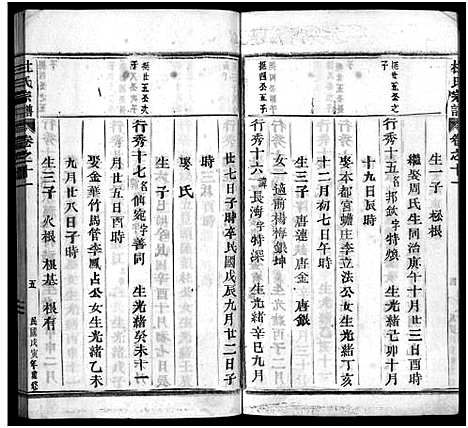 杜氏宗譜
卷之十一
生一子 極根
繼娶周氏生同治庚午十月廿三日酉時
行秀十五名邦欽字特煥 生光緒己卯十月
十九日辰時
娶本都宮蟾庄李立法公女生光緒丁亥
十二月初七日午時
生三子 唐蓮 唐金 唐銀
女一 適前楊梅銀坤
行秀十六諱長海字特深 生光緒辛巳九月
廿七日子時卒民國戊辰九月廿二日子
時
娶氏
行秀十七名仙寵字善同 生光緒癸未十一
月廿五日酉時
娶金華竹馬管李鳳占公女生光緒乙未
九月廿八日子時
生三子 火根 根基 根有
杜氏宗譜
卷之十一
五
民國戊寅年重修